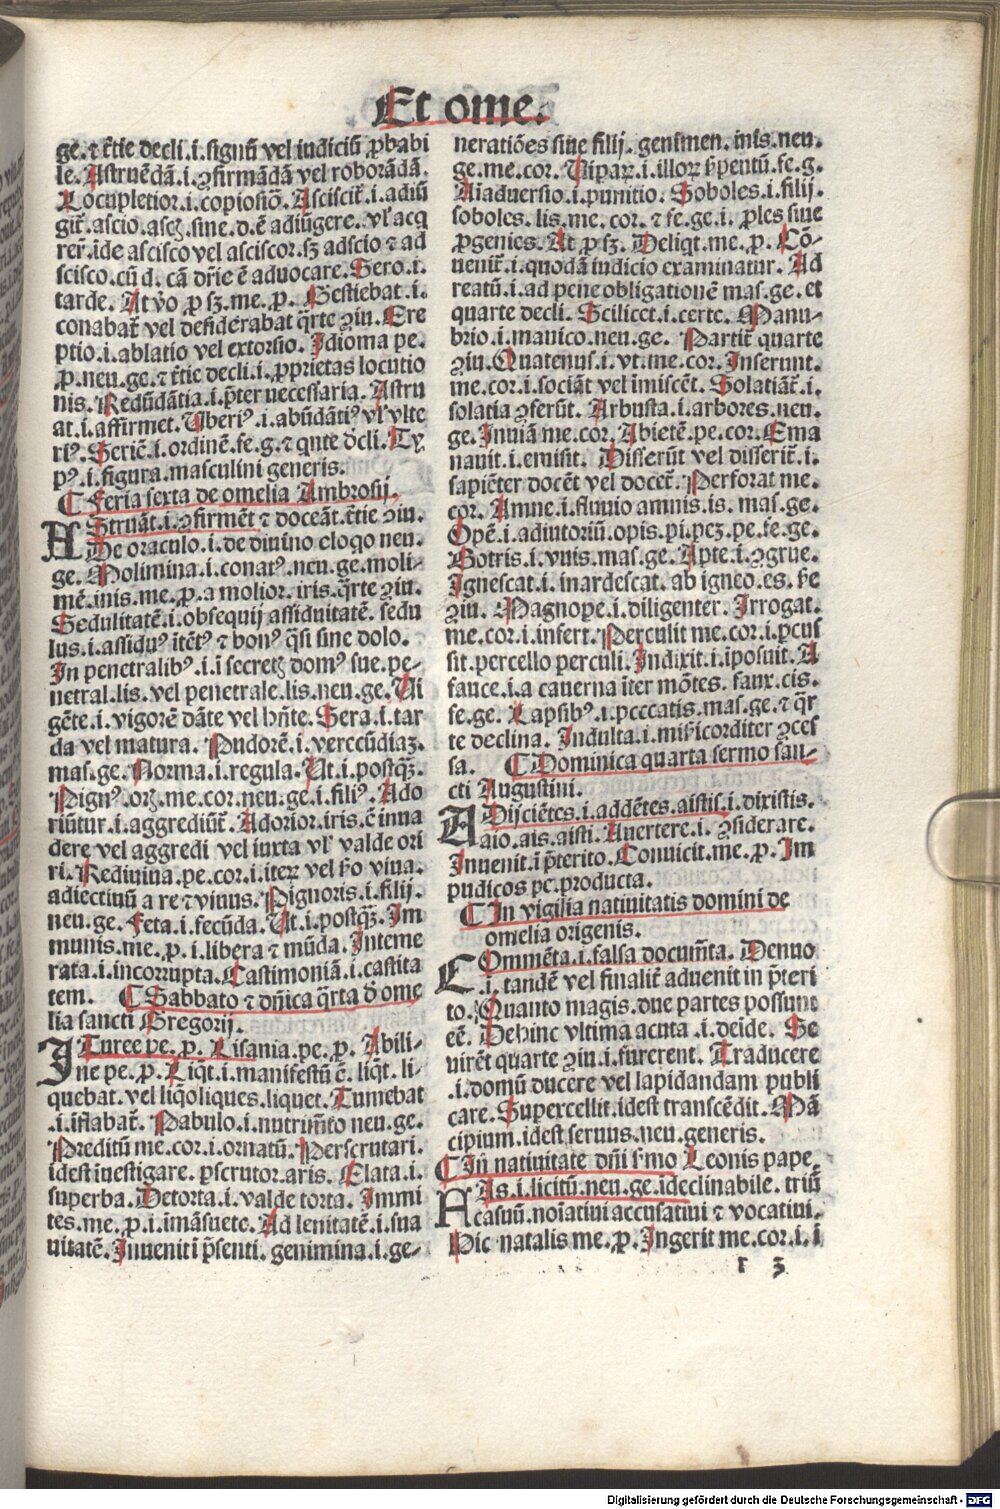 Et ome.
ge. ⁊ t̄tie decli .i. signū vel iudiciū ꝓbabi
le. Astruēdā .i. ꝯfirmādā vel roborādā.
Locupletior .i. copiosiō. Asciscit̄ .i. adiū
git̄. ascio. ascꝫ. sine .d. ē adiūgere. vl' acq
rer̄. ide ascisco vel asciscor. sꝫ adscio ⁊ ad
scisco. cū .d. cā dr̄ie ē aduocare. Sero .i.
tarde. At v̄o ꝓ sꝫ. me. ꝓ. Gestiebat .i.
conabat̄ vel desiderabat q̄rte ꝯiu. Ere
ptio .i. ablatio vel extorsio. Idioma pe.
ꝓ. neu. ge. ⁊ t̄tie decli .i. ꝓprietas locutio
nis. Redūdātia .i. p̄ter necessaria. Astru
at .i. affirmet. Uberiꝰ .i. abūdātiꝰ vl' vlte
riꝰ. Seriē .i. ordinē. fe. g. ⁊ qnte dcli. Ty
pꝰ .i. figura. masculini generis.
¶ Feria sexta de omelia Ambrosij.
AStruāt .i. ꝯfirmēt ⁊ doceāt. t̄tie ꝯiu.
De oraculo .i. de diuino eloqo neu.
ge. Molimina .i. conatꝰ. neu. ge. moli-
mē. inis. me. ꝓ. a molior. iris. q̄rte ꝯiu.
Sedulitatē .i. obsequij assiduitatē. sedu
lus .i. assiduꝰ itētꝰ ⁊ bonꝰ q̄si sine dolo.
In penetralibꝰ .i. i secretꝫ domꝰ sue. pe-
netral. lis. vel penetrale. lis. neu. ge. Ui
gēte .i. vigorē dāte vel hn̄te. Sera .i. tar
da vel matura. Pudorē .i. verecūdiaꝫ.
mas. ge. Norma .i. regula. Ut .i. postqꝫ.
Pignꝰ .orꝫ. me. cor. neu. ge .i. filiꝰ. Ado
riūtur .i. aggrediūt̄. Adorior. iris. ē inua
dere vel aggredi vel iuxta vl' valde ori
ri. Rediuiua. pe. cor .i. iteꝝ vel r̄o viua.
adiectiuū a re ⁊ viuus. Pignoris .i. filij.
neu. ge. Feta .i. fecūda. Ut .i. postqꝫ. Im
munis. me. ꝓ. i libera ⁊ mūda. Inteme
rata .i. incorrupta. Castimoniā .i. castita
tem. ¶ Sabbato ⁊ dn̄ica q̄rta d ome
lia sancti Gregorij.
ITuree pe. ꝓ. Lisania. pe. ꝓ. Abili-
ne pe. ꝓ. Liq̄t .i. manifestū ē. liq̄t. li-
quebat. vel liq̄oliques. liquet. Tumebat
.i. iflabat̄. Pabulo .i. nutrim̄to neu. ge.
Preditū me. cor .i. ornatū. Perscrutari.
idest iuestigare. ꝑscrutor. aris. Elata .i.
superba. Detorta .i. valde torta. Immi
tes. me. ꝓ. i imāsuete. Ad lenitatē .i. sua
uitatē. Inueniti p̄senti. genimina .i. ge-
neratiōes siue filij. genimen. inis. neu.
ge. me. cor. Uipaꝝ .i. illoꝝ s̄pentū. fe. g.
Aiaduersio .i. punitio. Soboles .i. filij.
soboles. lis. me. cor. ⁊ fe. ge. i ꝓles siue
ꝓgenies. At ꝓ sꝫ. Deliqt. me. ꝓ. Cō-
uenit̄ .i. quodā iudicio examinatur. Ad
reatū .i. ad pene obligationē mas. ge. et
quarte decli. Scilicet .i. certe. Manu-
brio .i. manico. neu. ge. Partit̄ quarte
ꝯiu. Quatenus .i. vt. me. cor. Inserunt.
me. cor .i. sociāt vel imiscēt. Solatiāt̄ .i.
solatia ꝯferūt. Arbusta .i. arbores. neu.
ge. Inuiā me. cor. Abietē. pe. cor. Ema
nauit .i. emisit. Disserūt vel disserit̄ .i.
sapiēter docēt vel docet̄. Perforat me.
cor. Amne .i. fluuio amnis. is. mas. ge.
Opē .i. adiutoriū. opis. pi. pcꝫ. pe. fe. ge.
Botris .i. vuis. mas. ge. Apte .i. ꝯgrue.
Ignescat .i. inardescat. ab igneo. es. s̄e
ꝯiu. Magnope .i. diligenter. Irrogat.
me. cor .i. infert. Perculit me. cor .i. pcus
sit. percello perculi. Indixit .i. iposuit. A
fauce .i. a cauerna iter mōtes. faux. cis.
fe. ge. Lapsibꝰ .i. peccatis. mas. ge. ⁊ q̄r
te declina. Indulta .i. mis̄icorditer ꝯces
sa. ¶ Dominica quarta sermo san-
cti Augustini.
ADijciētes .i. addētes. aistis .i. dixistis.
aio. ais. aisti. Auertere .i. ꝯsiderare.
Inuenit i p̄terito. Conuicit. me. ꝓ. Im
pudicos pe. producta.
¶ In vigilia natiuitatis domini de
omelia origenis.
COmmēta .i. falsa documn̄ta. Denuo
.i. tandē vel finalit̄ aduenit in p̄teri
to. Quanto magis. due partes possunt
eē. Dehinc vltima acuta .i. deide. Se
uirēt quarte ꝯiu .i. furerent. Traducere
.i. domū ducere vel lapidandam publi
care. Supercellit. idest transcēdit. Mā
cipium. idest seruus. neu. generis.
¶ In natiuitate dn̄i s̄mo Leonis pape.
FAs .i. licitū. neu. ge. ideclinabile. triū
casuū. noiatiui accusatiui ⁊ vocatiui.
Hic natalis me. ꝓ. Ingerit me. cor .i. i
r 3
Digitalisierung gefördert durch die Deutsche Forschungsgemeinschaft - DFG